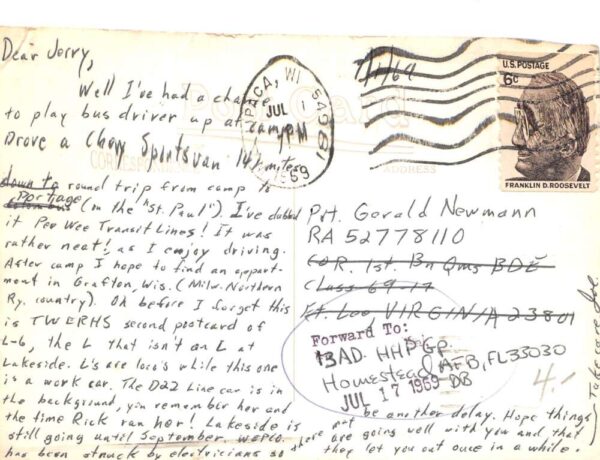 Dear Jerry,
Well I've had a chance
to play bus driver up at camp.
Drove a Chevy Sportsvan 141 miles
down to round trip from camp to
Portage
Columbus (on the "St. Paul"). I've dubbed
it Pee Wee Transit Lines! It was
rather neat! as I enjoy driving.
After camp I hope to find an appart-
ment in Grafton, Wis. (Milw. Northern
Ry. country). Oh before I forget this
is TWERHS second postcard of
L-6, the L that isn't an L at
Lakeside. L's are loco's while this one
is a work car. The D22 Line car is in
the background, you remember her and
the time Rick ran her! Lakeside is
still going until September. WEPCO.
has been struck by electricians so there
may not be another delay. Hope things
are going well with you and that
they let you out once in a while.
Take care Joe
Post Card
CORRESPONDENCE
ADDRESS
PACA, WI 54981
JUL 1
PM
1969
7/1/69
U.S. POSTAGE
6c
FRANKLIN D. ROOSEVELT
Pvt. Gerald Newmann
RA 52778110
COR. 1st. Bn Qms BDE
Class 69-17
Ft. Lee VIRGINIA 23801
Forward To:
BAD. HHP GP.
Homestead AFB, FL 33030
JUL 17 1969 DB
4.-